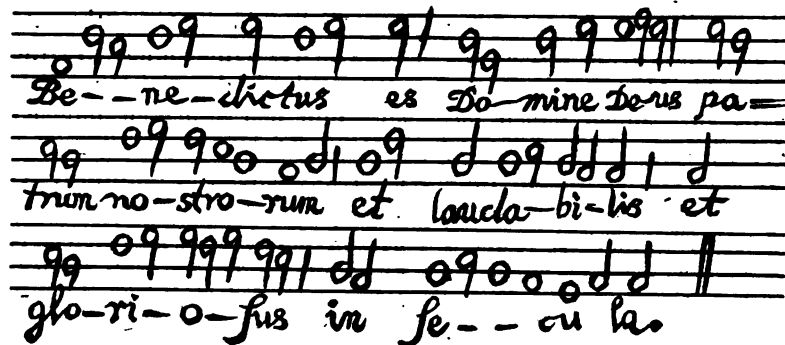 Be--ne-dictus es Do-mine De-us pa=
trum no-stro-rum et lauda-bi-lis et
glo-ri-o-sus in se--cu la.